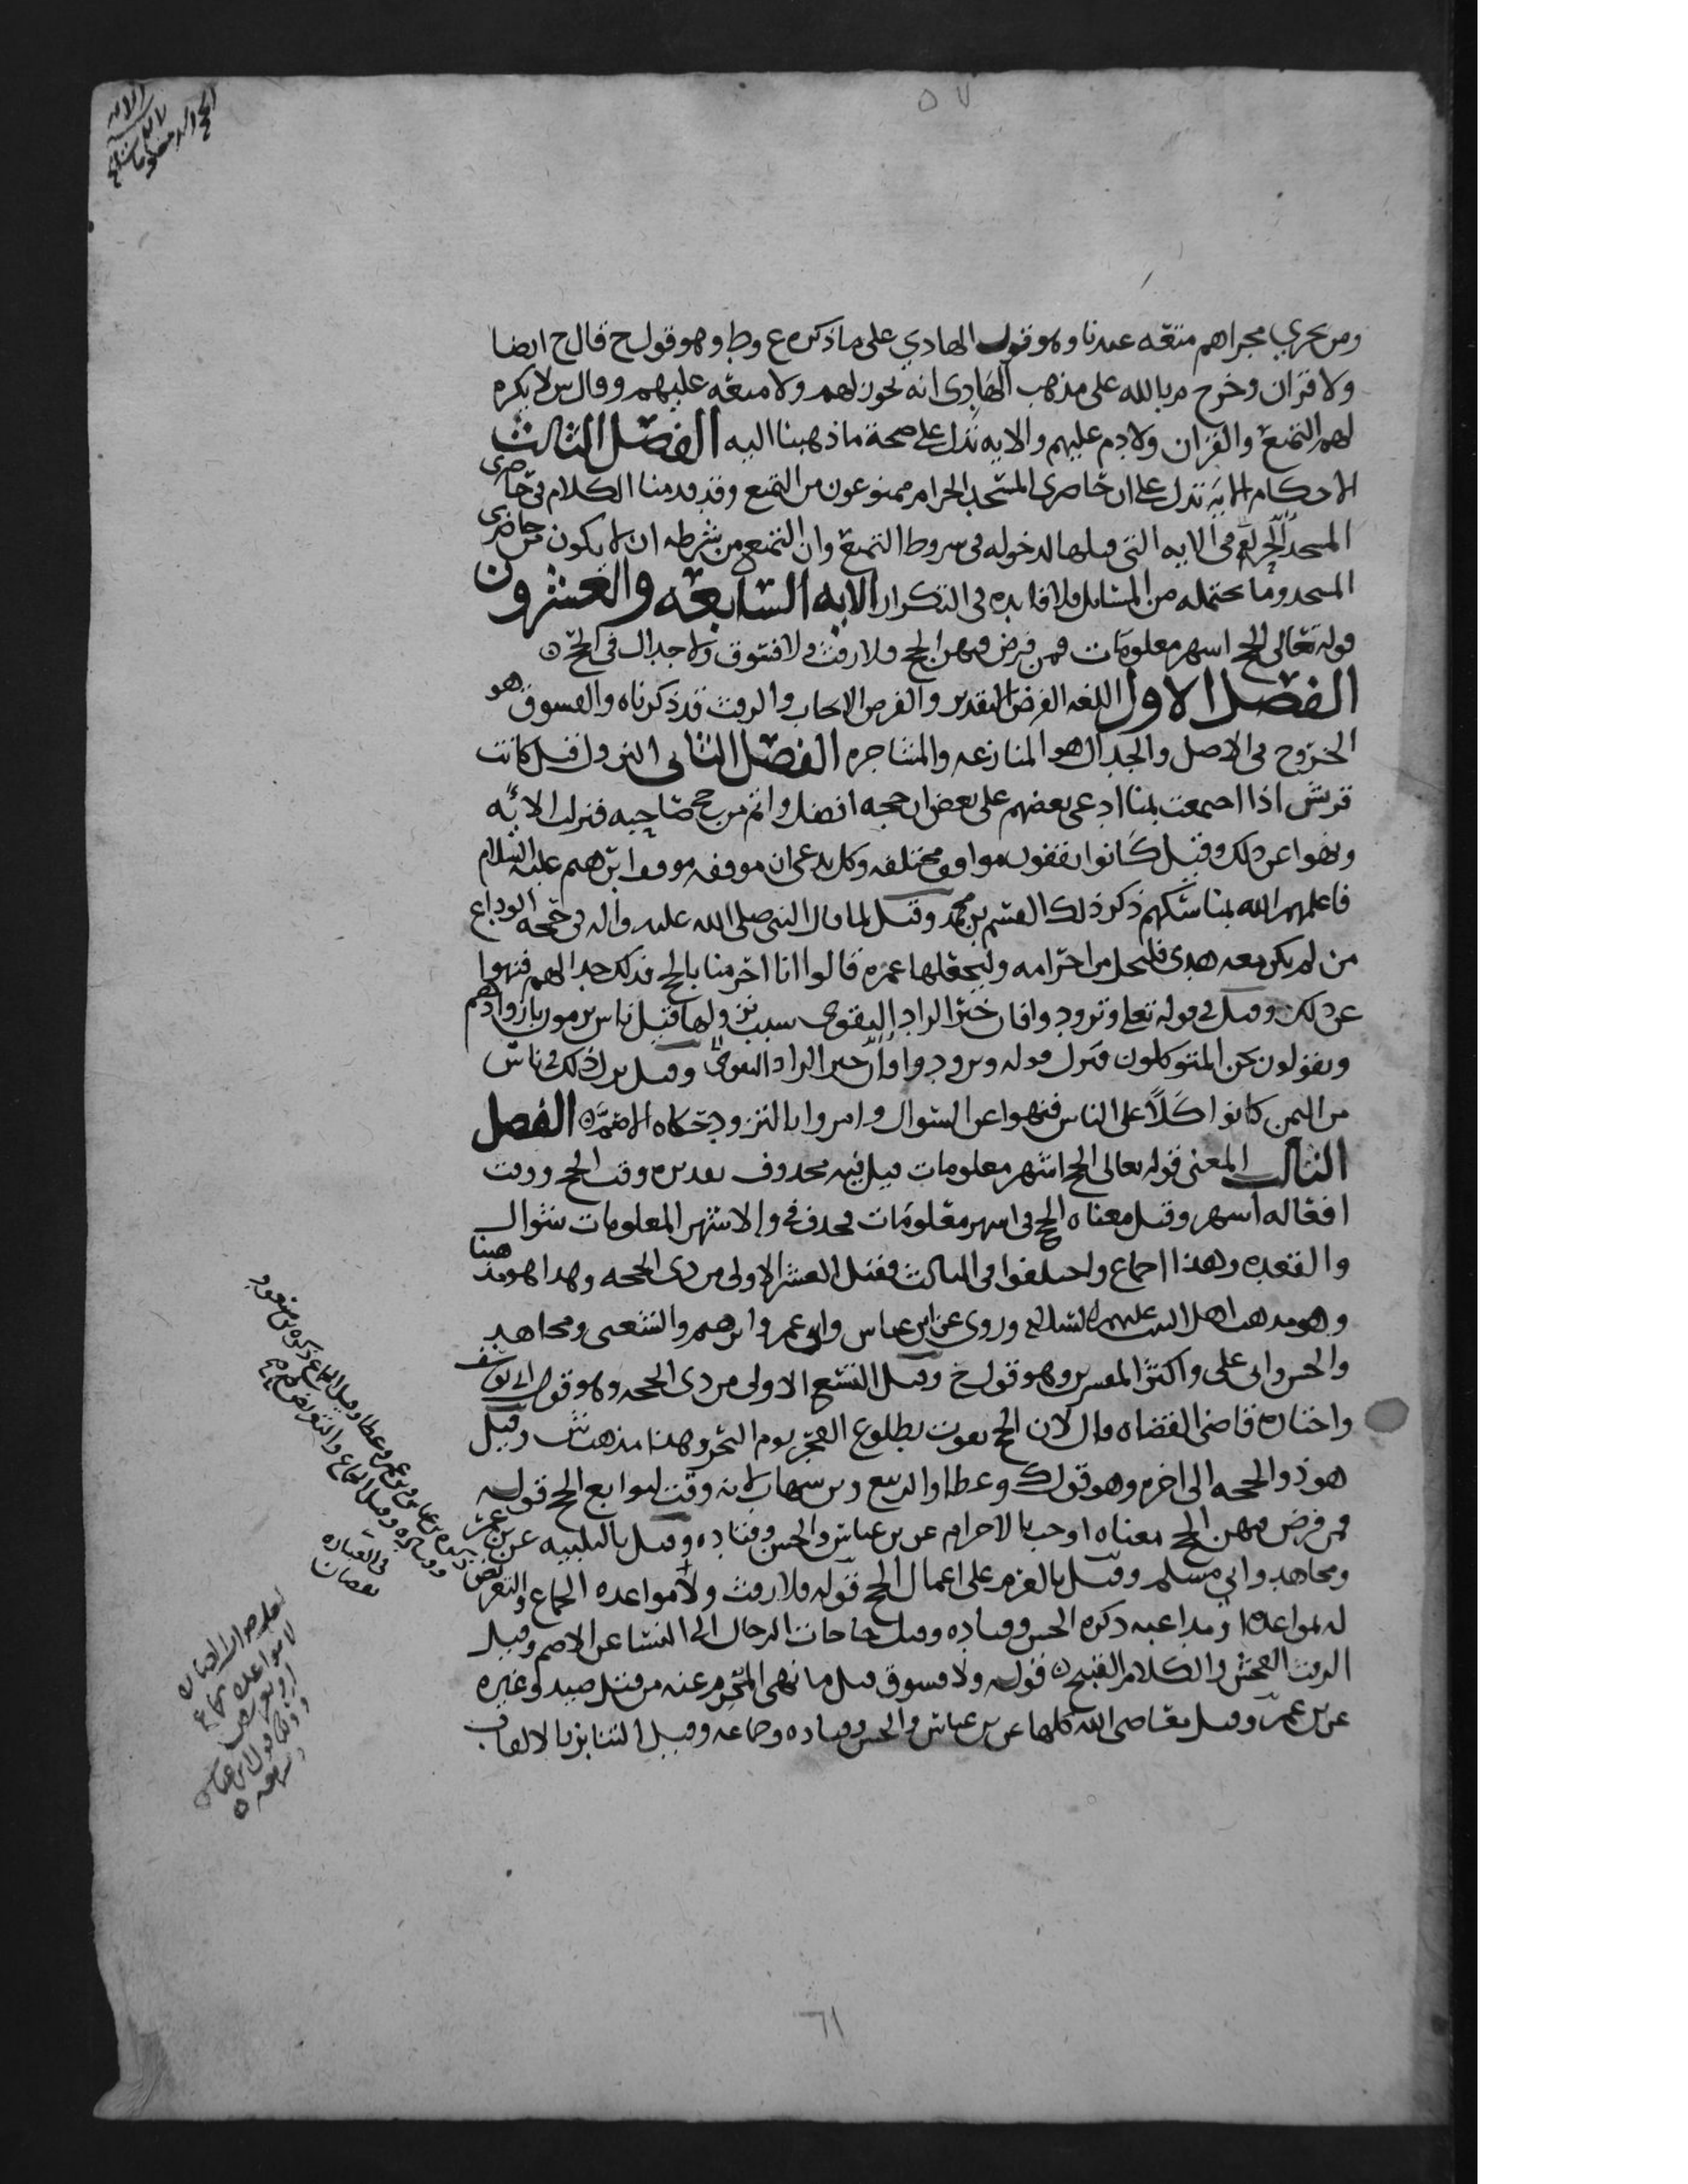 ٥٧
ومن يجري مجراهم متعه عندنا وهو قول الهادي على ما ذكره ع وط وهو قول ح قال ح ايضا
ولا قران وخرج م بالله على مذهب الهادى انه يجوز لهم ولا متعه عليهم وقال س لا يكره
لهم التمتع والقران ولا دم عليهم والايه تدل على صحة ما ذهبنا اليه الفصل الثالث
الاحكام الايه تدل على ان حاضرى المسجد الحرام ممنوعون من التمتع وقد قدمنا الكلام فى حاضرى
المسجد الحرام فى الايه التى قبلها لدخوله فى شروط التمتع وان التمتع من شرطه ان لا يكون من حاضرى
المسجد وما يحتمله من المسايل فلا فايده فى التكرار الايه السابعه والعشرون
قوله تعالى الحج اشهر معلومات فمن فرض فيهن الحج فلا رفث ولا فسوق ولا جدال فى الحج
الفصل الاول اللغه الفرض التقدير والفرض الايجاب والرفث قد ذكرناه والفسوق هو
الخروج فى الاصل والجدال هو المنازعه والمشاجره الفصل الثانى النزول قيل كانت
قريش اذا اجتمعت بمنا ادعى بعضهم على بعض ان حجه افضل واتم من حج صاحبه فنزلت الايه
ونهوا عن ذلك وقيل كانوا يقفون مواقف مختلفه وكل يدعى ان موقفه موقف ابرهيم عليه السلام
فاعلمهم الله بمناسكهم ذكر ذلك القسم بن محمد وقيل لما قال النبى صلى الله عليه واله فى حجه الوداع
من لم يكن معه هدى فليحل من احرامه وليجعلها عمره قالوا انا احرمنا بالحج فذلك جدالهم فنهوا
عن ذلك وقيل فى قوله تعلى وتزودوا فان خير الزاد التقوى سبب نزولها قيل ناس يرمون بازوادهم
ويقولون نحن المتوكلون فنزل قوله وتزودوا فان خير الزاد التقوى وقيل نزل ذلك فى ناس
من اليمن كانوا كلا على الناس فنهوا عن السوال وامروا بالتزود حكاه الاصم الفصل
الثالث المعنى قوله تعالى الحج اشهر معلومات قيل فيه محذوف تقديره وقت الحج ووقت
افعاله اشهر وقيل معناه الحج فى اشهر معلومات فحذف فى والاشهر المعلومات شوال
والقعده وهذا اجماع واختلفوا فى الثالث فقيل العشر الاولى من ذى الحجه وهذا هو مذهبنا
وهو مذهب اهل البيت عليهم السلام وروى عن ابن عباس وابن عمر وابرهيم والشعبى ومجاهد
والحسن وابى على واكثر المفسرين وهو قول ح وقيل التسع الاولى من ذى الحجه وهو قول ابى يوسف
واختاره قاضى القضاه قال لان الحج يفوت بطلوع الفجر يوم النحر وهذا مذهب ش وقيل
هو ذو الحجه الى اخره وهو قول ك وعطا والربيع وبن شهاب لانه وقت لتوابع الحج قوله
فمن فرض فيهن الحج معناه اوجب بالاحرام عن بن عباس والحسن وقتاده وقيل بالتلبيه عن بن عمر
ومجاهد وابى مسلم وقيل بالعزم على اعمال الحج قوله فلا رفث ولا مواعده الجماع والتعريض
له لمواعده او مداعبه ذكره الحسن وقتاده وقيل حاجات الرجال الى النسا عن الاصم وقيل
الرفث الفحش والكلام القبيح قوله ولا فسوق قيل ما نهى المحرم عنه من قتل صيد وغيره
عن بن عمر وقيل معاصى الله كلها عن بن عباس والحسن وقتاده وجماعه وقيل التنابز بالالقاب
فى العباره
نقصان
٦١